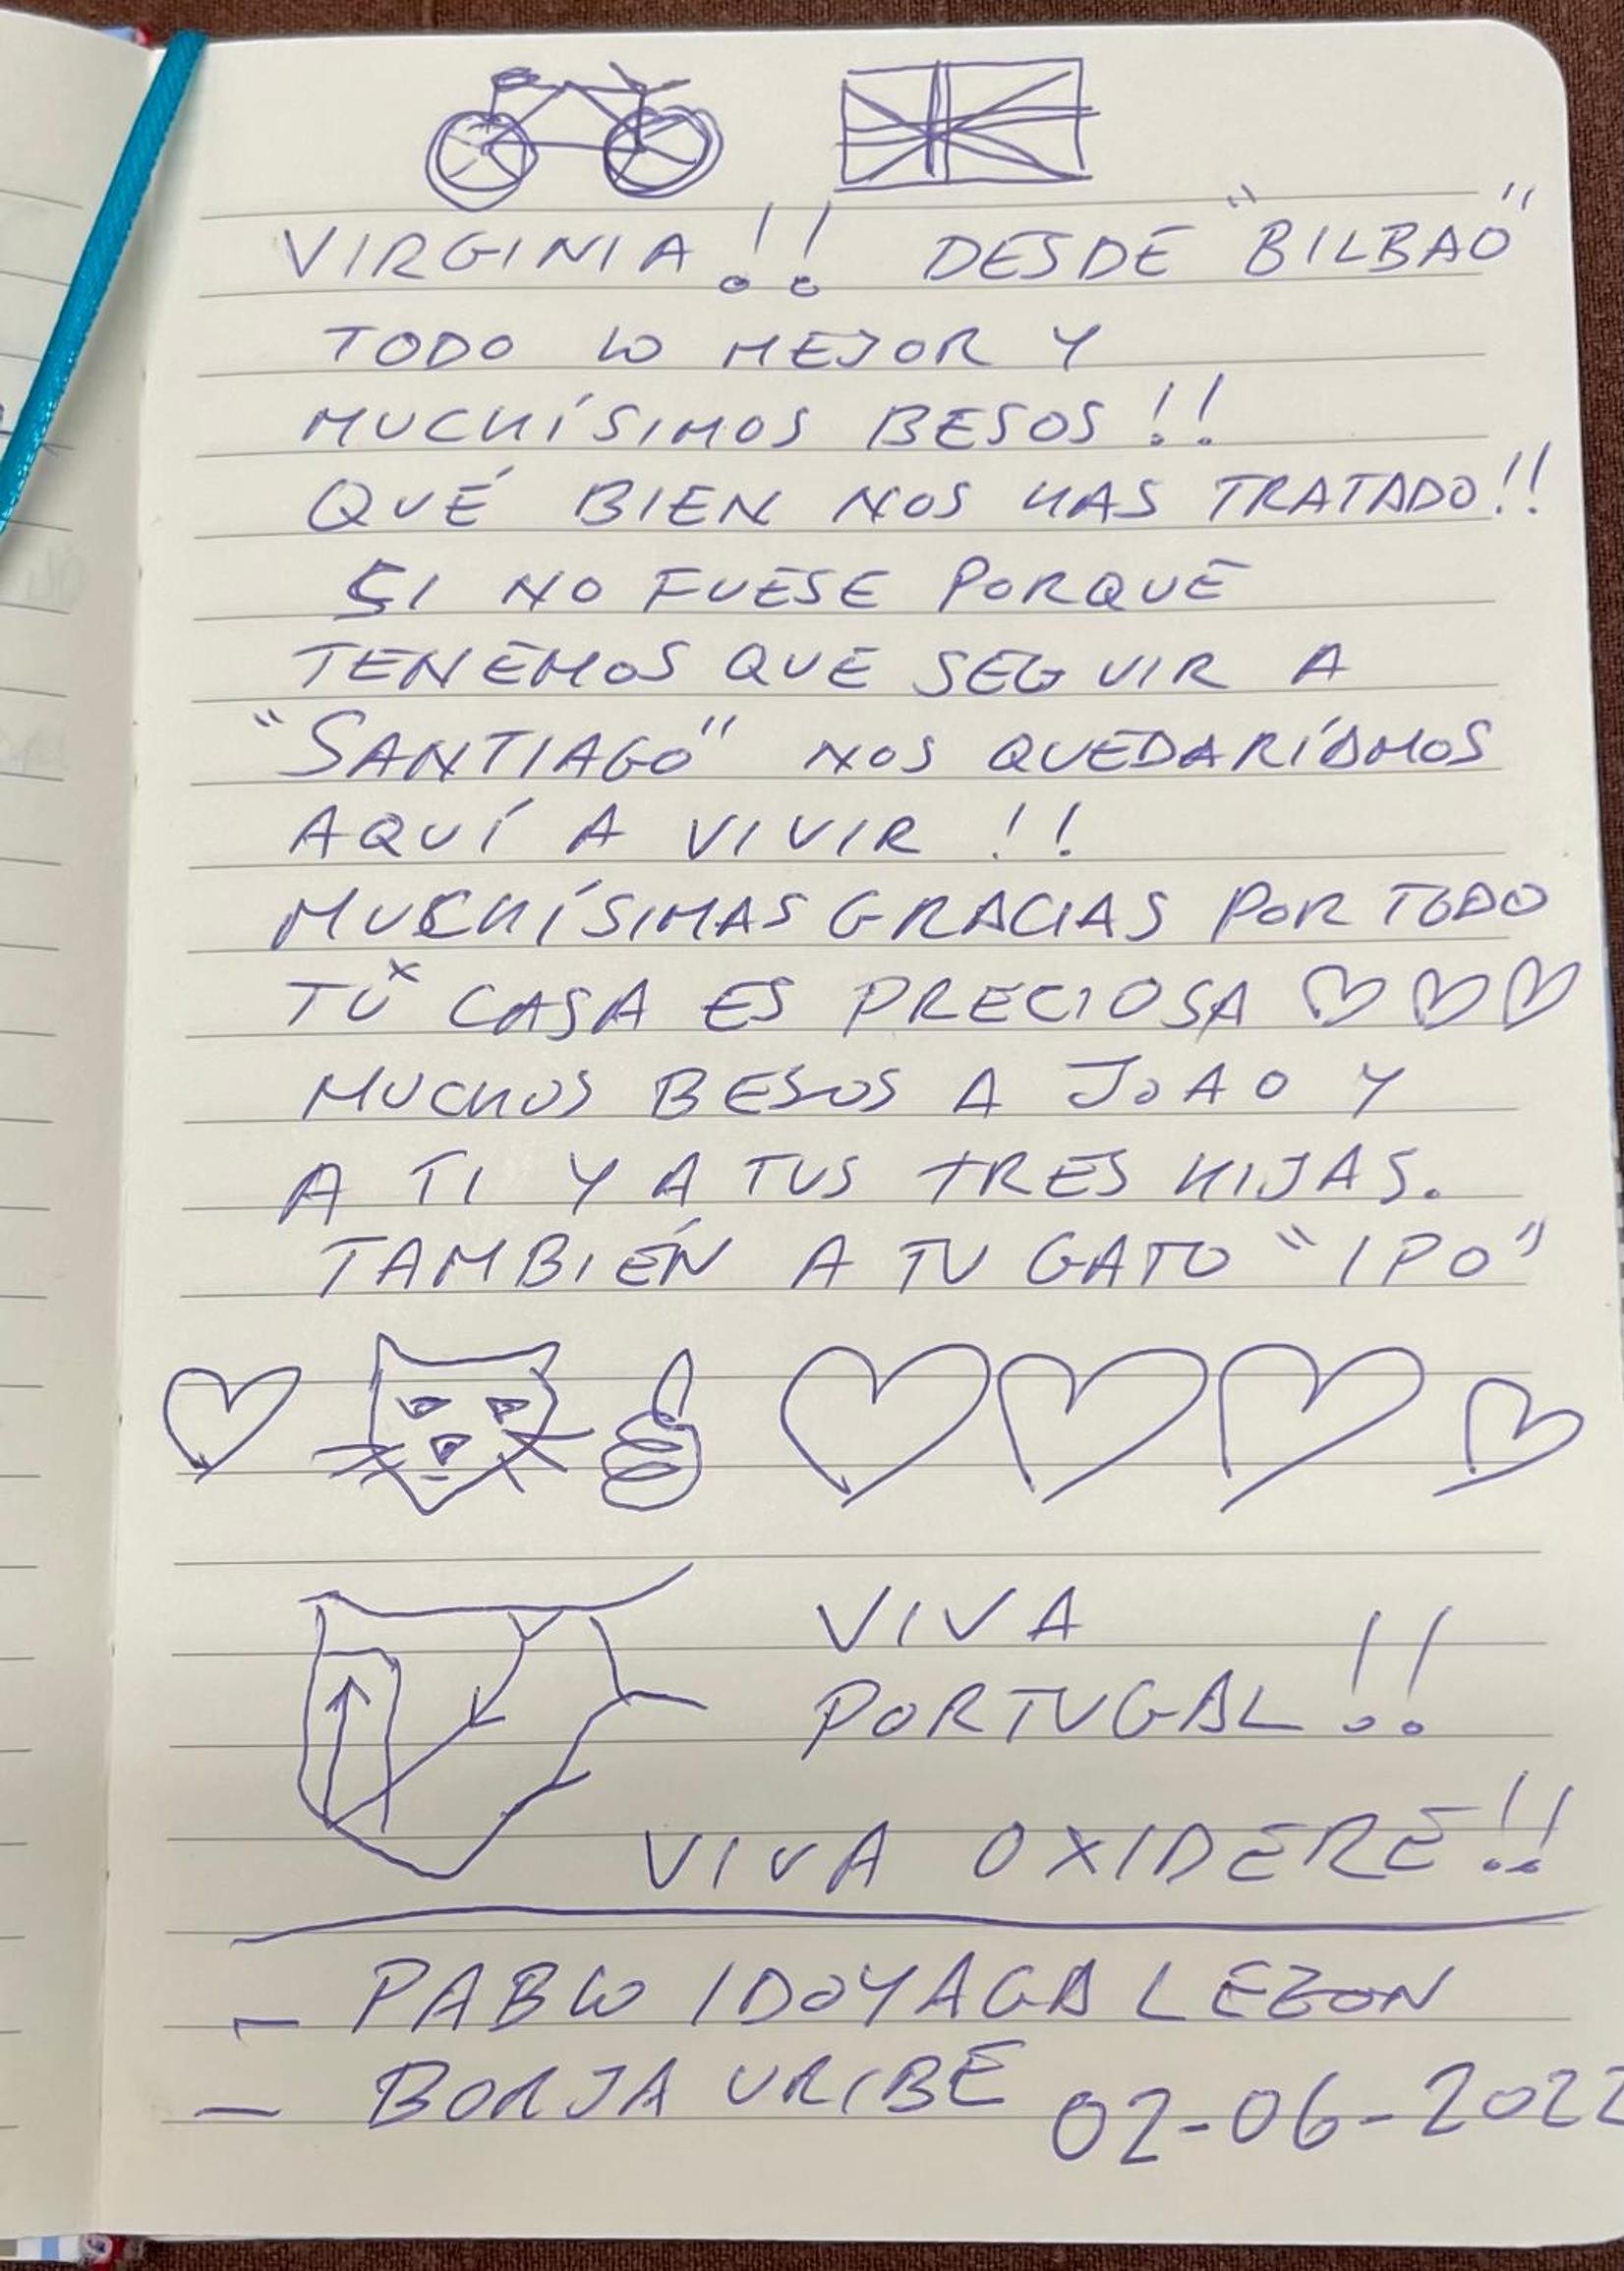 VIRGINIA!! DESDE "BILBAO"
TODO LO MEJOR Y
MUCHÍSIMOS BESOS!!
QUÉ BIEN NOS HAS TRATADO!!
SI NO FUESE PORQUE
TENEMOS QUE SEGUIR A
"SANTIAGO" NOS QUEDARÍAMOS
AQUÍ A VIVIR!!
MUCHÍSIMAS GRACIAS POR TODO
TU CASA ES PRECIOSA ♡♡♡
MUCHOS BESOS A JOAO Y
A TI Y A TUS TRES HIJAS.
TAMBIÉN A TU GATO "IPO"
VIVA
PORTUGAL!!
VIVA OXIDERE!!
- PABLO IDOYAGA LEZON
- BORJA URIBE 02-06-2022